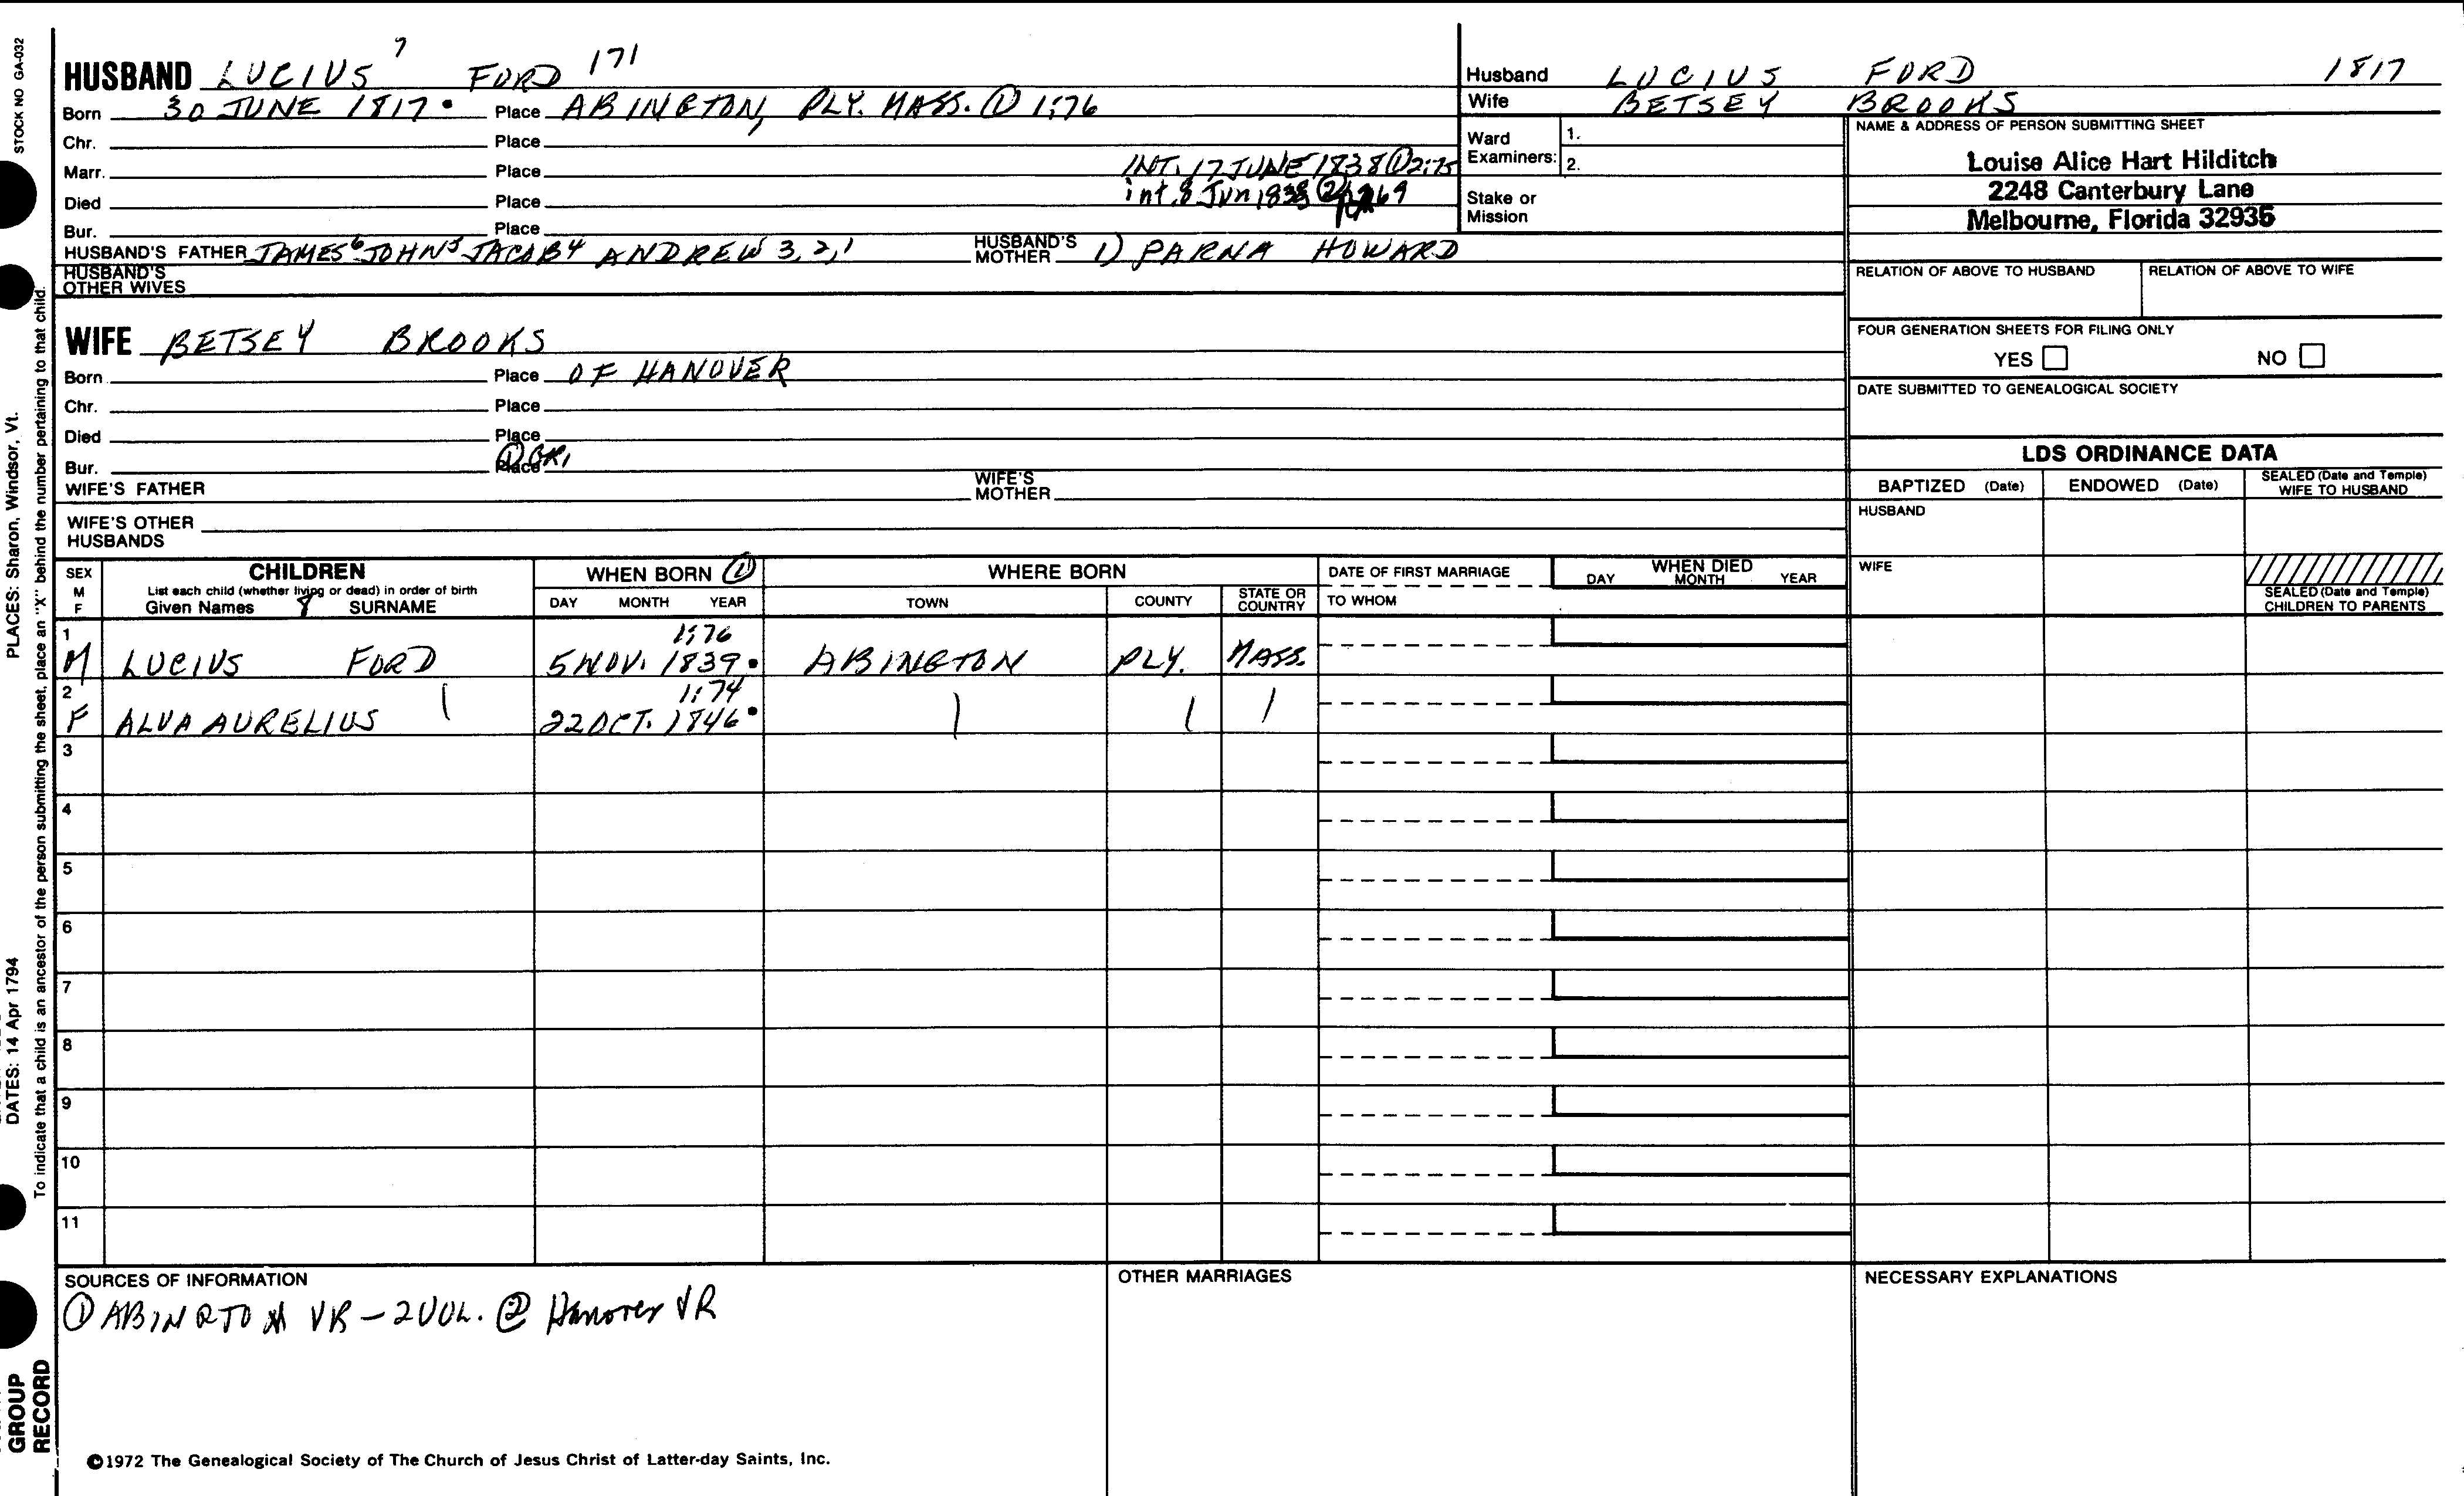 STOCK NO GA-032
PLACES: Sharon, Windsor, Vt.
DATES: 14 Apr 1794
To indicate that a child is an ancestor of the person submitting the sheet, place an "X" behind the number pertaining to that child.
GROUP
RECORD
HUSBAND LUCIUS 7 FORD 171
Born 30 JUNE 1817. Place ABINGTON, PLY. MASS. ① 1:76
Chr. Place
Marr. Place INT. 17 JUNE 1838 ① 2:75
Died Place int. 8 Jun 1838 ②
Bur. Place
HUSBAND'S FATHER JAMES 6 JOHN 5 JACOB 4 ANDREW 3, 2, 1 HUSBAND'S MOTHER 1) PARNA HOWARD
HUSBAND'S OTHER WIVES
WIFE BETSEY BROOKS
Born Place OF HANOVER
Chr. Place
Died Place
Bur. Place ①
WIFE'S FATHER WIFE'S MOTHER
WIFE'S OTHER HUSBANDS
Husband LUCIUS FORD 1817
Wife BETSEY BROOKS
Ward Examiners: 1.
2.
Stake or Mission
NAME & ADDRESS OF PERSON SUBMITTING SHEET
Louise Alice Hart Hilditch
2248 Canterbury Lane
Melbourne, Florida 32935
RELATION OF ABOVE TO HUSBAND RELATION OF ABOVE TO WIFE
FOUR GENERATION SHEETS FOR FILING ONLY
YES NO
DATE SUBMITTED TO GENEALOGICAL SOCIETY
LDS ORDINANCE DATA
BAPTIZED (Date) ENDOWED (Date) SEALED (Date and Temple) WIFE TO HUSBAND
HUSBAND
WIFE
SEALED (Date and Temple) CHILDREN TO PARENTS
SEX M F CHILDREN WHEN BORN ① WHERE BORN DATE OF FIRST MARRIAGE WHEN DIED
List each child (whether living or dead) in order of birth
Given Names 8 SURNAME DAY MONTH YEAR TOWN COUNTY STATE OR COUNTRY TO WHOM DAY MONTH YEAR
1 1:76
M LUCIUS FORD 5 NOV. 1839. ABINGTON PLY. MASS.
2 1:74
F ALVA AURELIUS 22 OCT. 1846.
3
4
5
6
7
8
9
10
11
SOURCES OF INFORMATION OTHER MARRIAGES NECESSARY EXPLANATIONS
① ABINGTON VR - 2 VOL. ② Hanover VR
©1972 The Genealogical Society of The Church of Jesus Christ of Latter-day Saints, Inc.